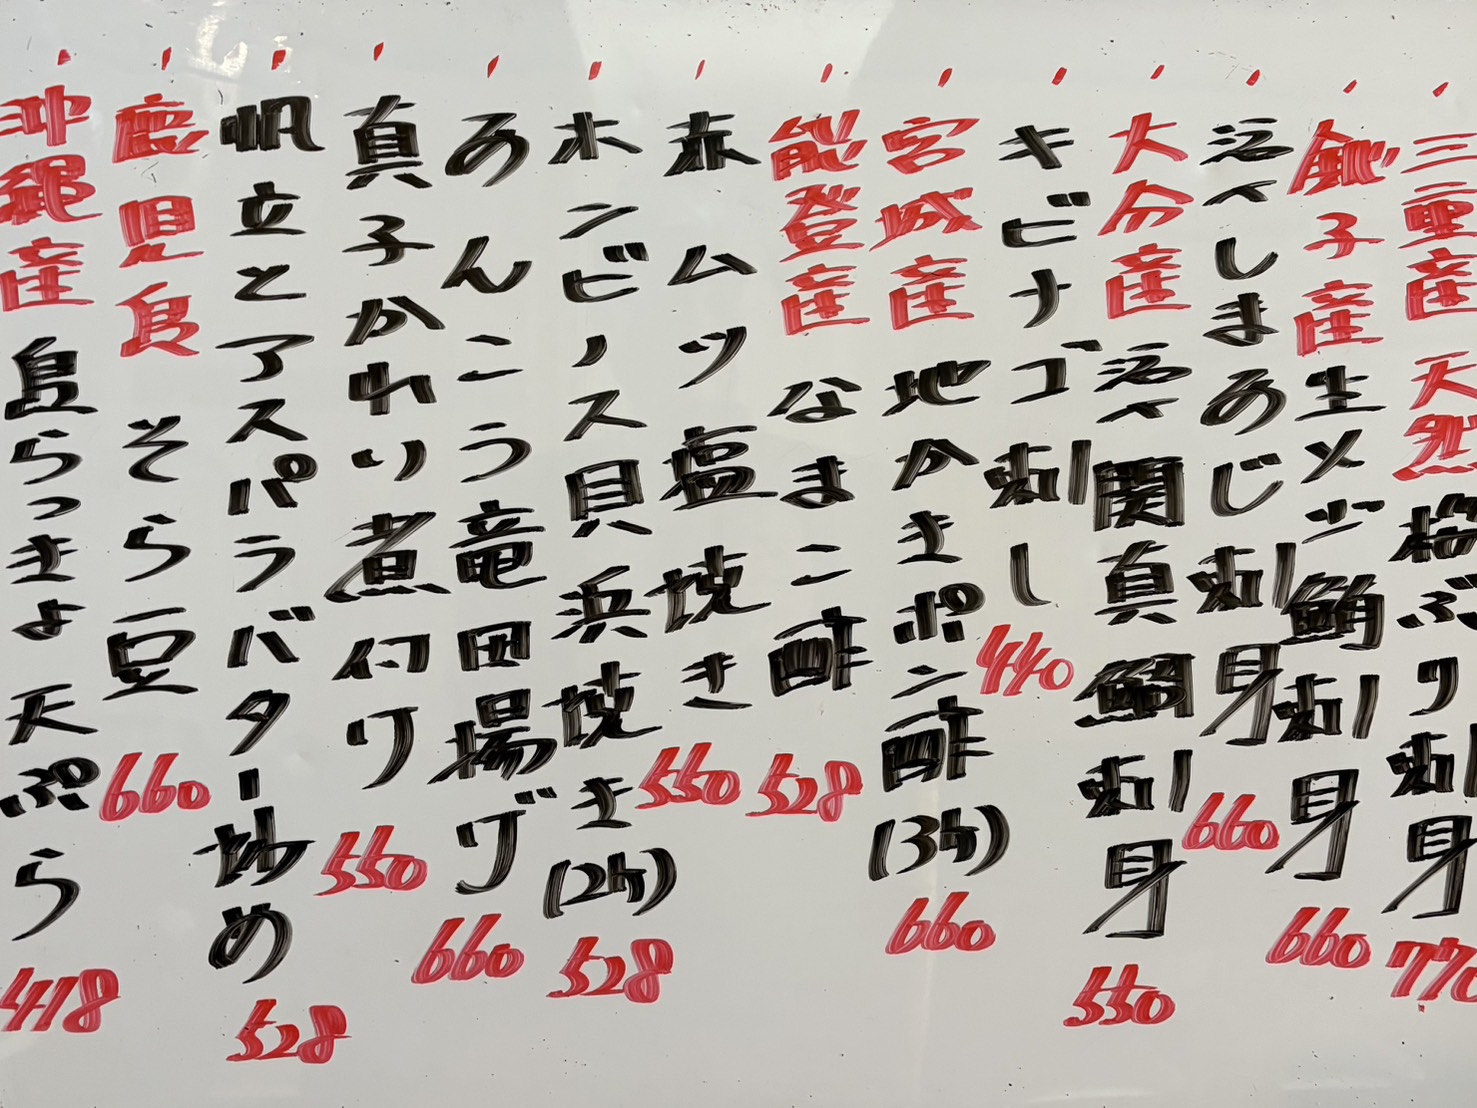 三重産 天然 桜ぶり刺身 770
銚子産 生メジ鮪刺身 660
活〆しまあじ刺身 660
大分産 活〆関真鯛刺身 550
キビナゴ刺し 440
宮城産 地かきポン酢(3ケ) 660
能登産 なまこ酢 528
赤ムツ塩焼き 550
ホンビノス貝浜焼き(2ケ) 528
あんこう竜田揚げ 660
真子かれい煮付け 550
帆立とアスパラバター炒め 528
鹿児島 そら豆 660
沖縄産 島らっきょ天ぷら 418